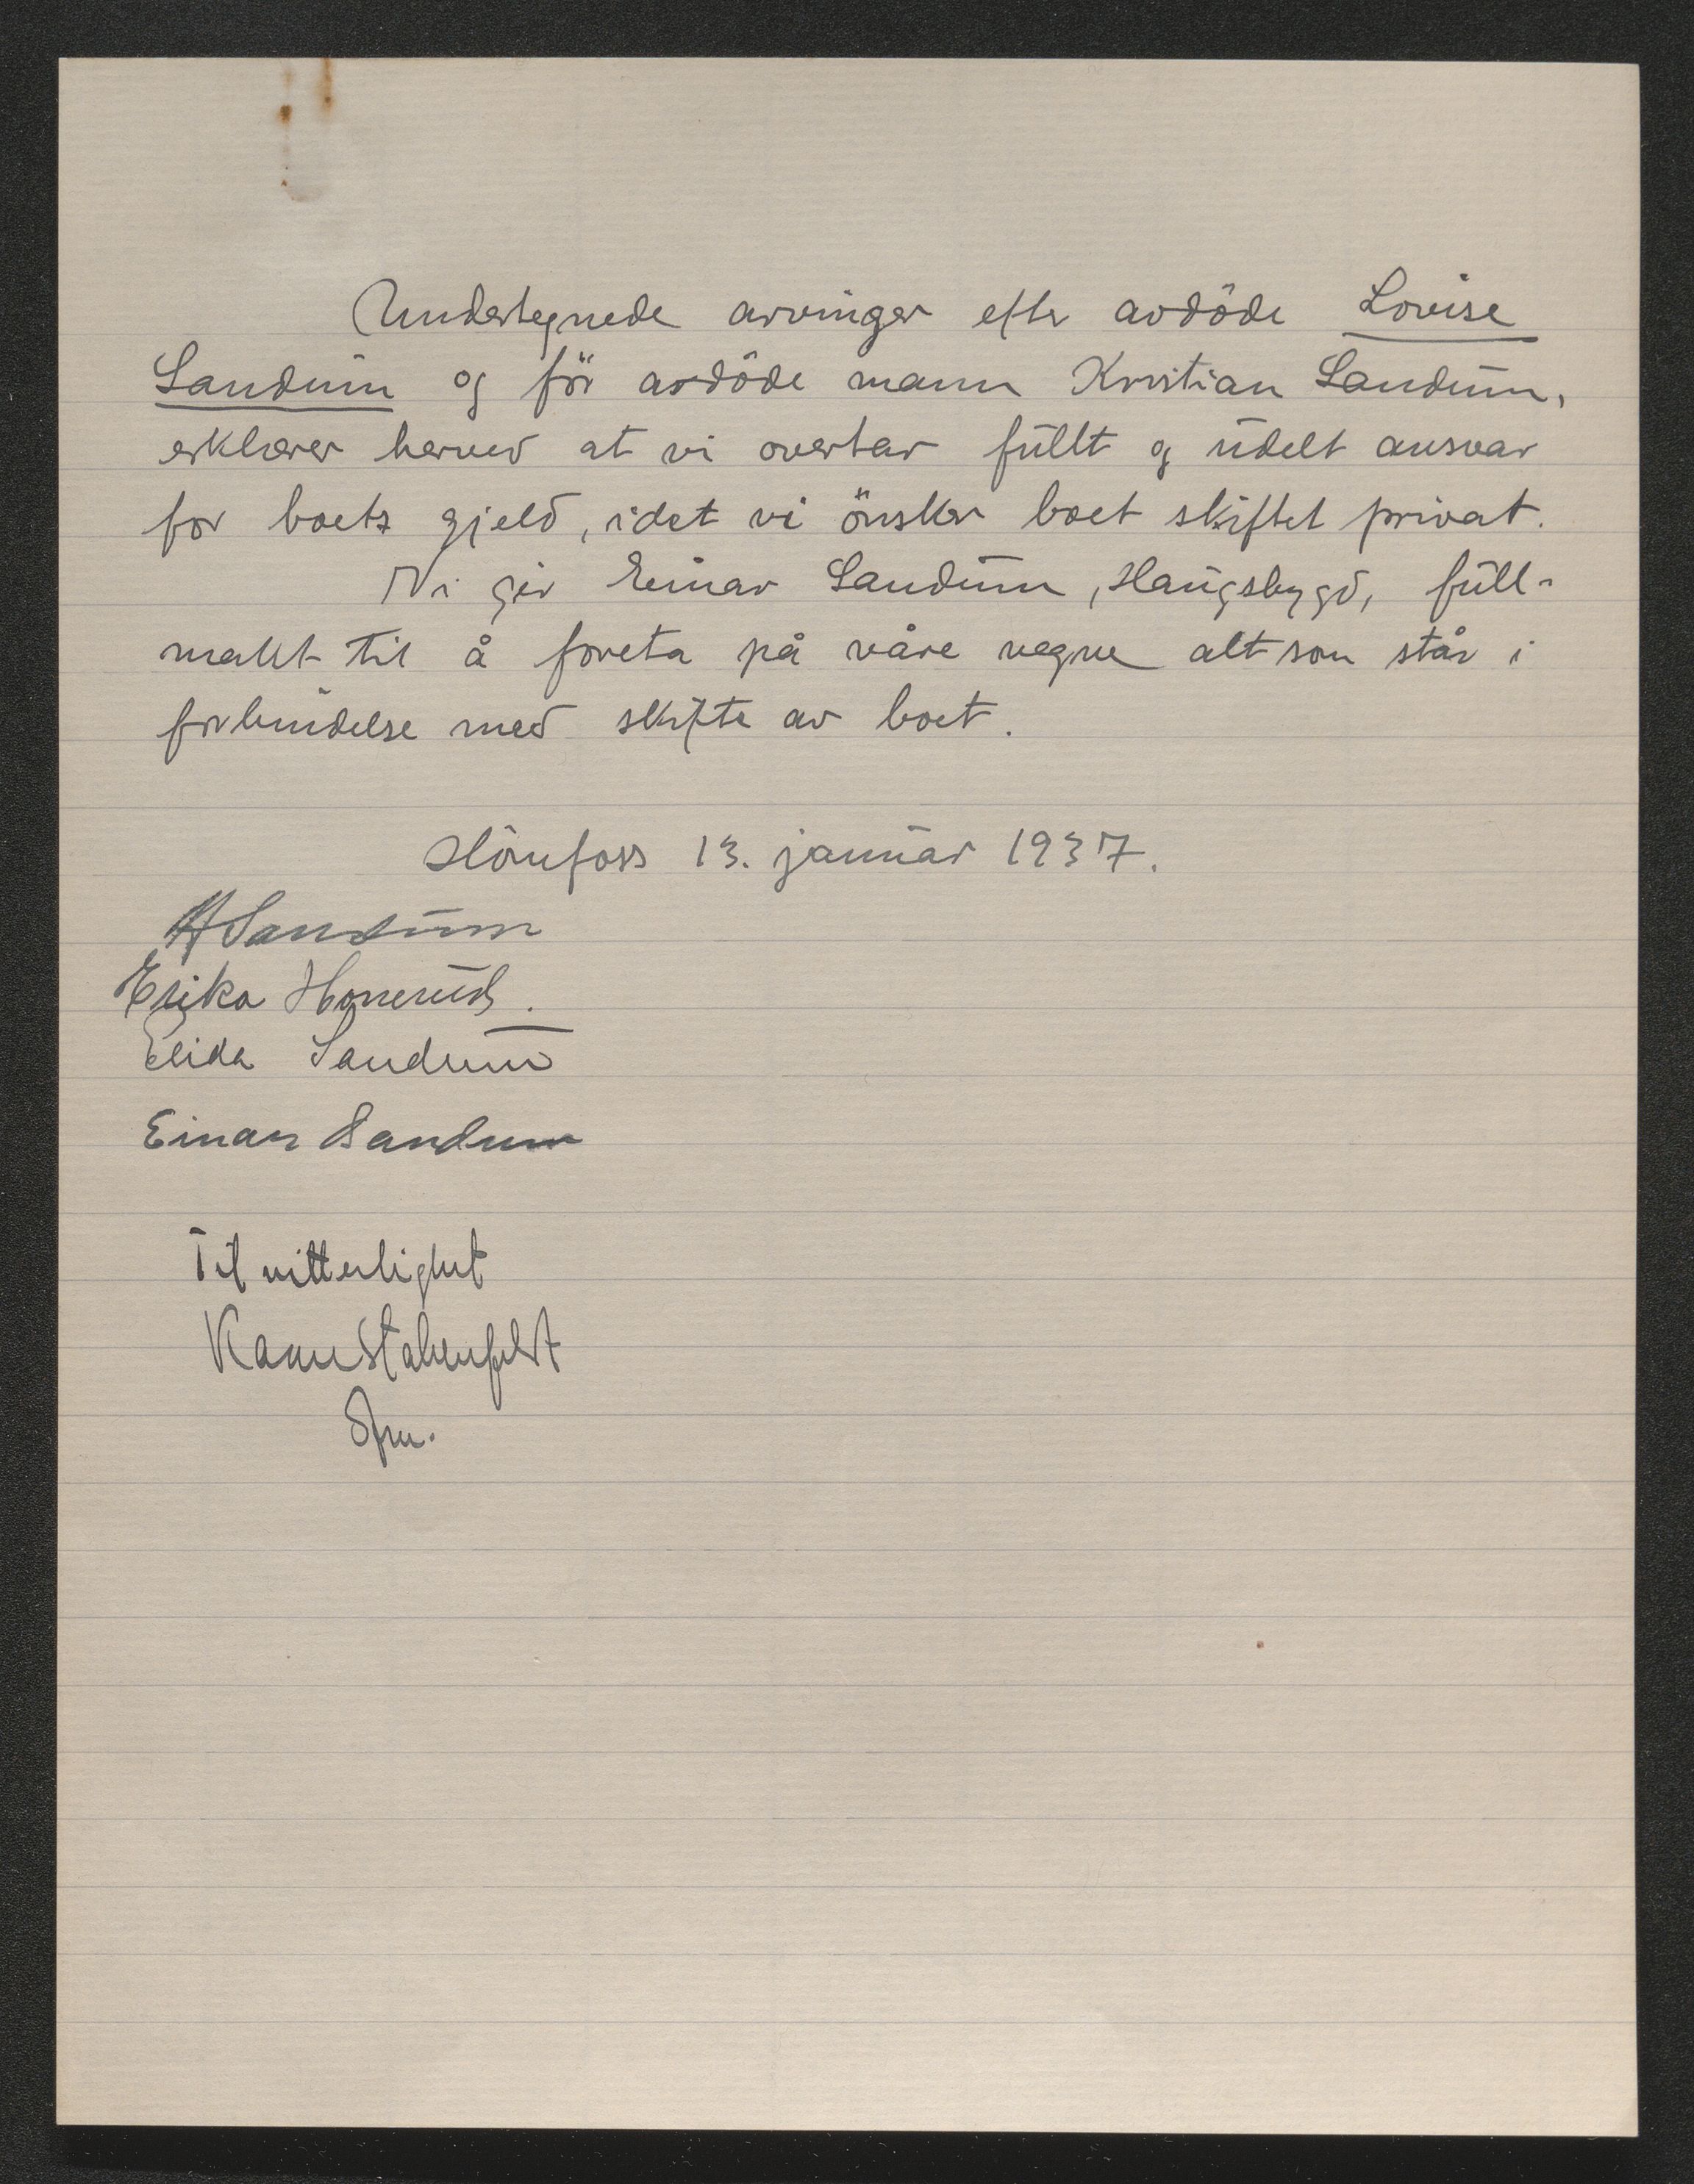 Undertegnede arvinger efter avdöde Lovise
Sandum og för avdöde mann Kristian Sandum,
erklærer herved at vi overtar fullt og udelt ansvar
for boets gjeld, idet vi önsker boet skiftet privat.
Vi gir Einar Sandum, Haugsbygd, full-
makt til å foreta på våre vegne alt som står i
forbindelse med skifte av boet.
Hönefoss 13. januar 1937.
A Sandum
Erika Honerud.
Elida Sandum
Einar Sandum
Til vitterlighet